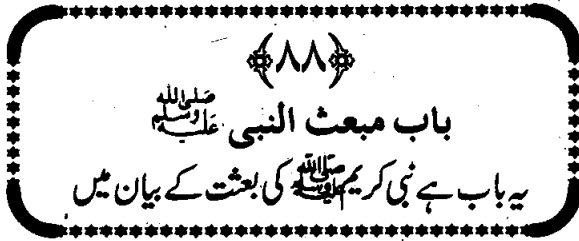 ﴿۸۸﴾
باب مبعث النبی صلی اللہ علیہ وسلم
یہ باب ہے نبی کریم ﷺ کی بعثت کے بیان میں